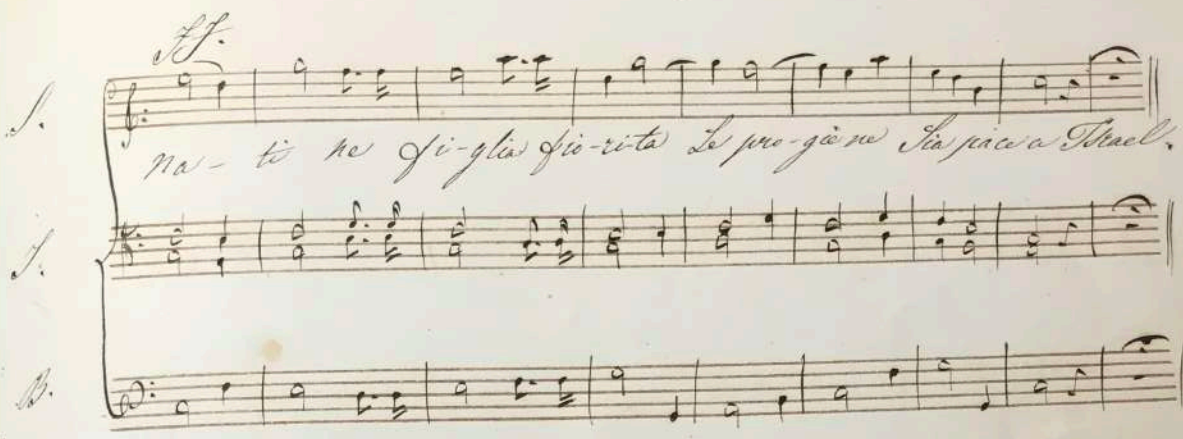 ff.
S.
na - ti ne fi-glia fio-ri-ta Le pro-gie ne Sia pace a Israel.
T.
B.